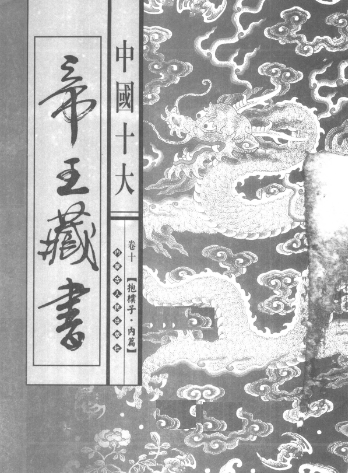 中國十大
帝王藏書
卷十
【抱樸子·内篇】